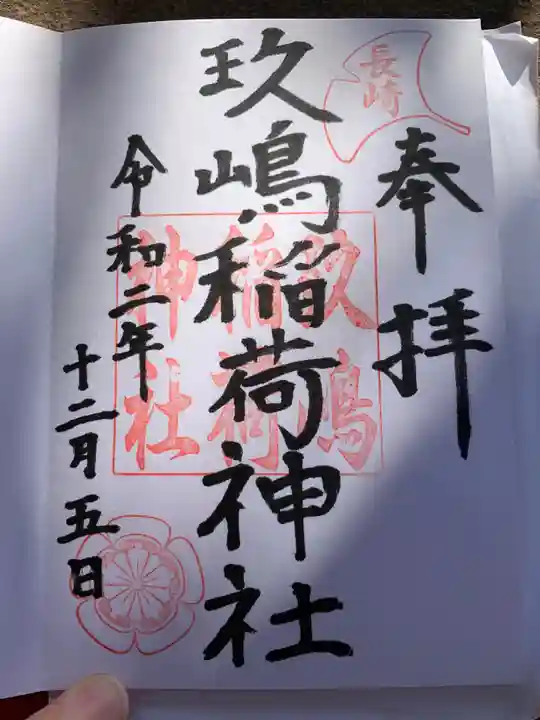 長崎
奉拝
玖嶋稲荷神社
玖嶋稲荷神社
令和二年
十二月五日